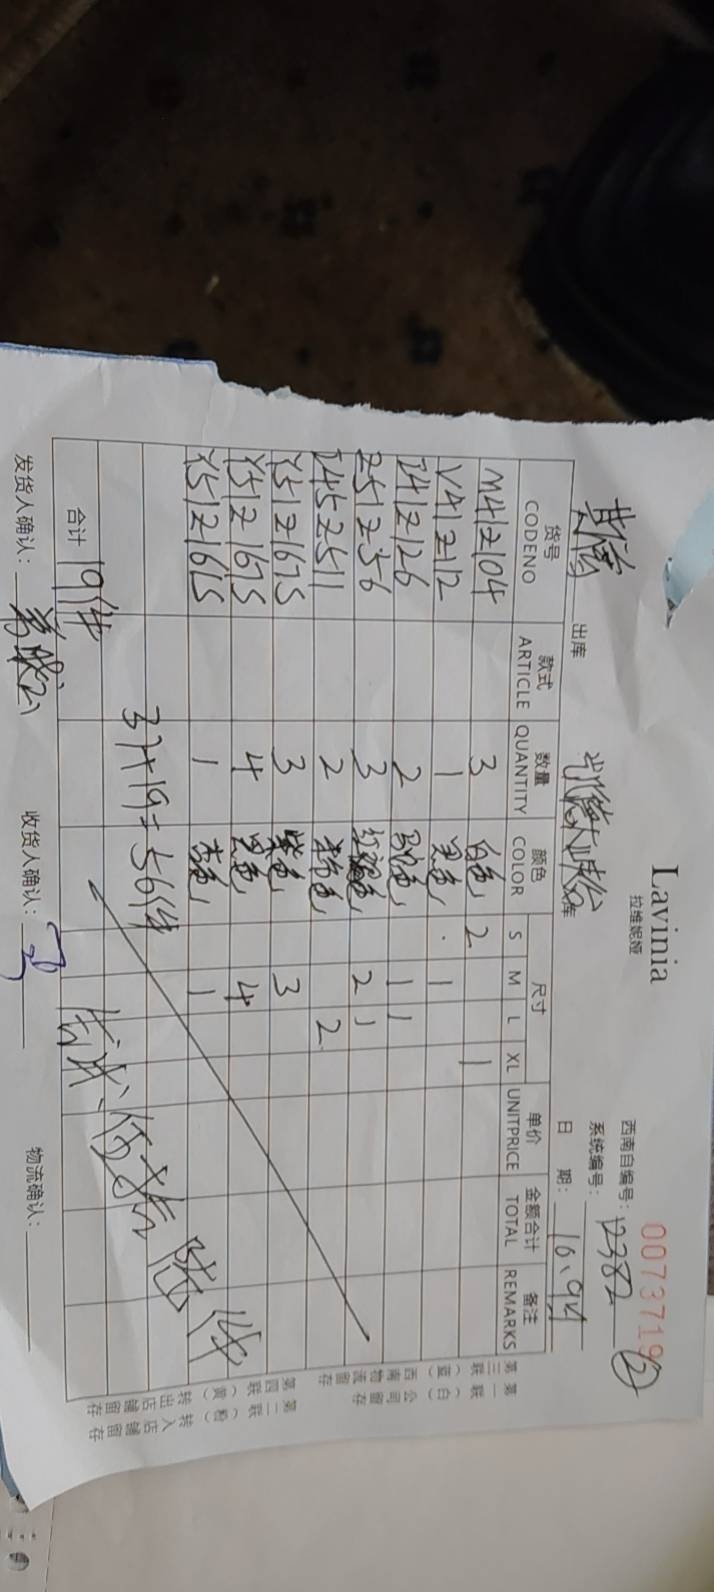 Lavinia
拉维妮娅
0073719
西南自编号: 12382 ②
系统编号:
出库 库 日 期: 16.9.4
货号 款式 数量 颜色 尺寸 单价 金额合计 备注
CODENO ARTICLE QUANTITY COLOR S M L XL UNITPRICE TOTAL REMARKS
M41Z104 3 白色 2 1
V41Z12 1 黑色 1
Z41Z126 2 色 1 1
Z51Z56 3 色 2 1
Z45Z511 2 色 2
Y51Z167S 3 紫色 3
Y51Z167S 4 黑色 4
Y51Z161S 1 杏色 1
37+19=56件
合计 19件 伍拾陆件
发货人确认: 收货人确认: 物流确认:
第一联（白）公司留存
第三联（蓝）西南物流留存
第二联（粉）转入店铺留存
第四联（黄）转出店铺留存